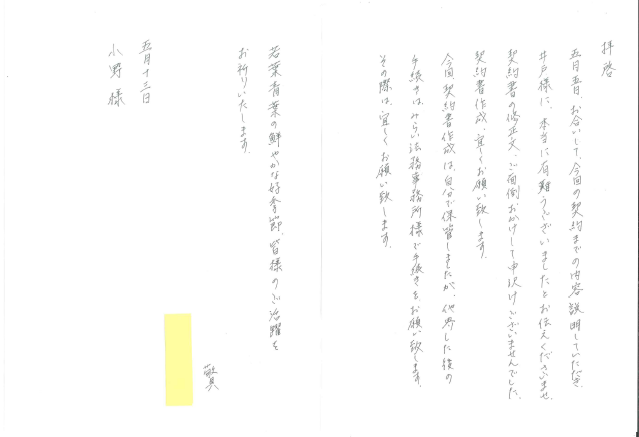 拝啓
五月五日、お会いして、今回の契約までの内容説明していただき、
井戸様に、本当に有難うございましたとお伝えくださいませ。
契約書の修正文、ご面倒おかけして申訳けございませんでした。
契約書作成、宜しくお願い致します。
今回契約書作成は、自分で保管しましたが、他界した後の
手続きは、みらい法務事務所様で手続きを、お願い致します。
その際は、宜しくお願い致します。
若葉青葉の鮮やかな好季節、皆様のご活躍を
お祈りいたします。
敬具
五月十三日
小野様